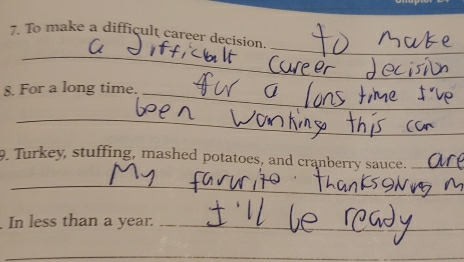 7. To make a difficult career decision. to make
a difficult career decision
8. For a long time. for a long time I've
been wanking this car
9. Turkey, stuffing, mashed potatoes, and cranberry sauce. are
My favurite thanksgiving m
In less than a year. I'll be ready